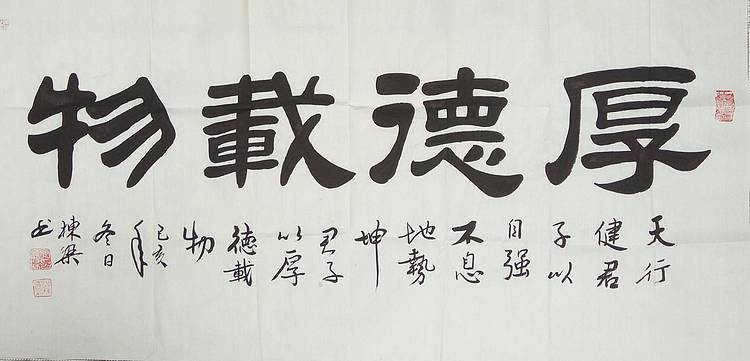 厚德載物
天行
健君
子以
自强
不息
地勢
坤
君子
以厚
德載
物
己亥
年
冬日
棟梁
书